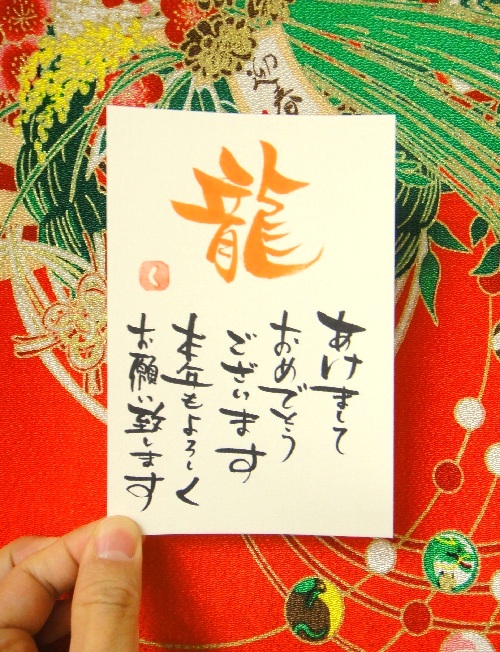 龍
あけまして
おめでとう
ございます
本年もよろしく
お願い致します
く